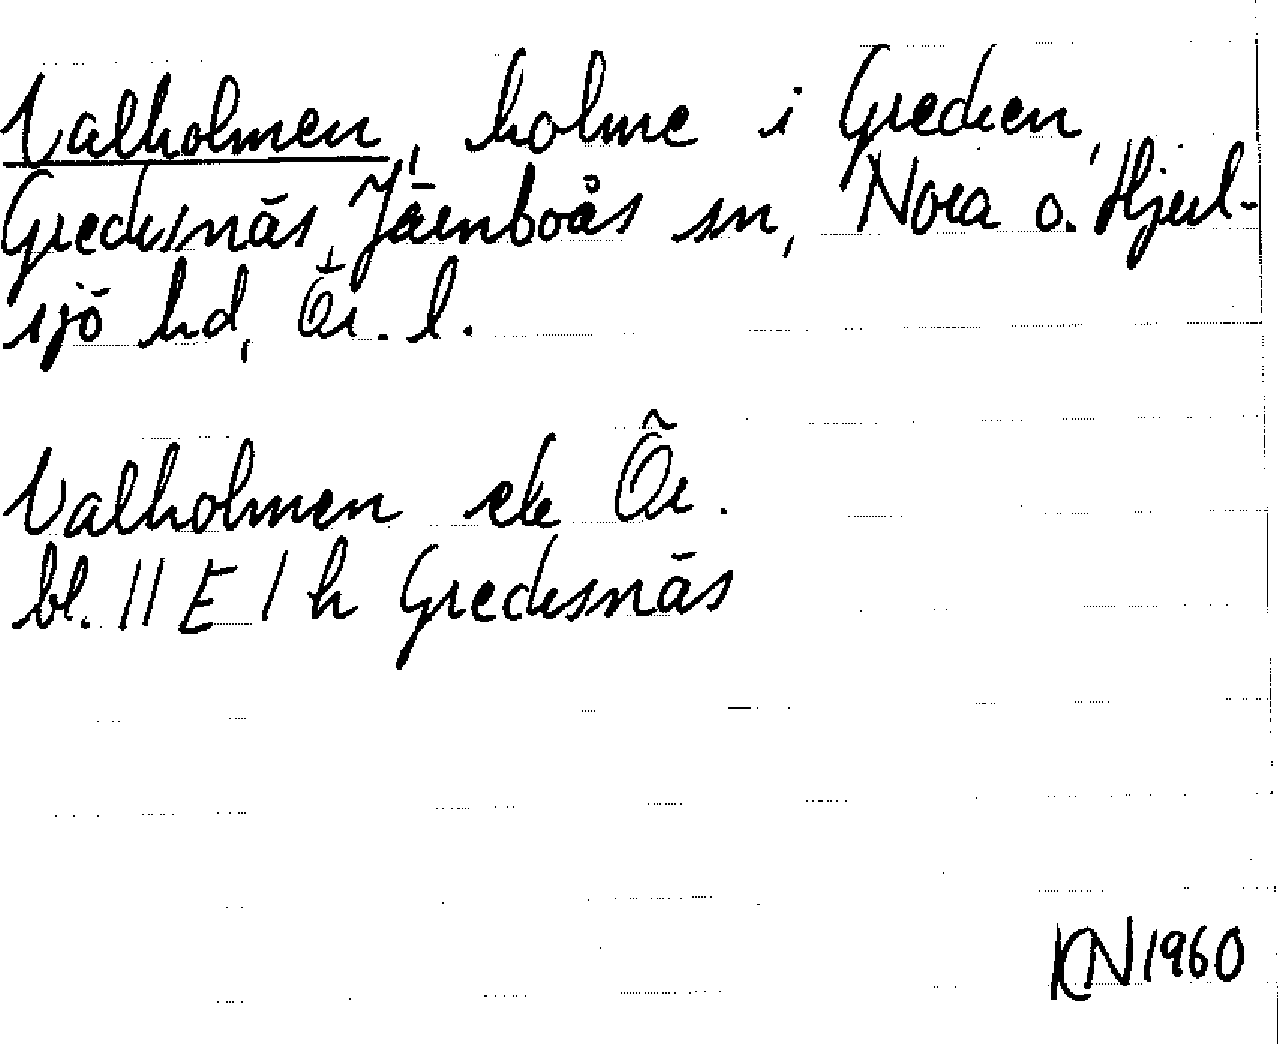 Valholmen, holme i Grecken,
Grecksnäs, Järnboås sn, Nora o. Hjul-
sjö hd, Ör. l.
Valholmen ek Ör.
bl. 11 E 1 h Grecksnäs
KN 1960